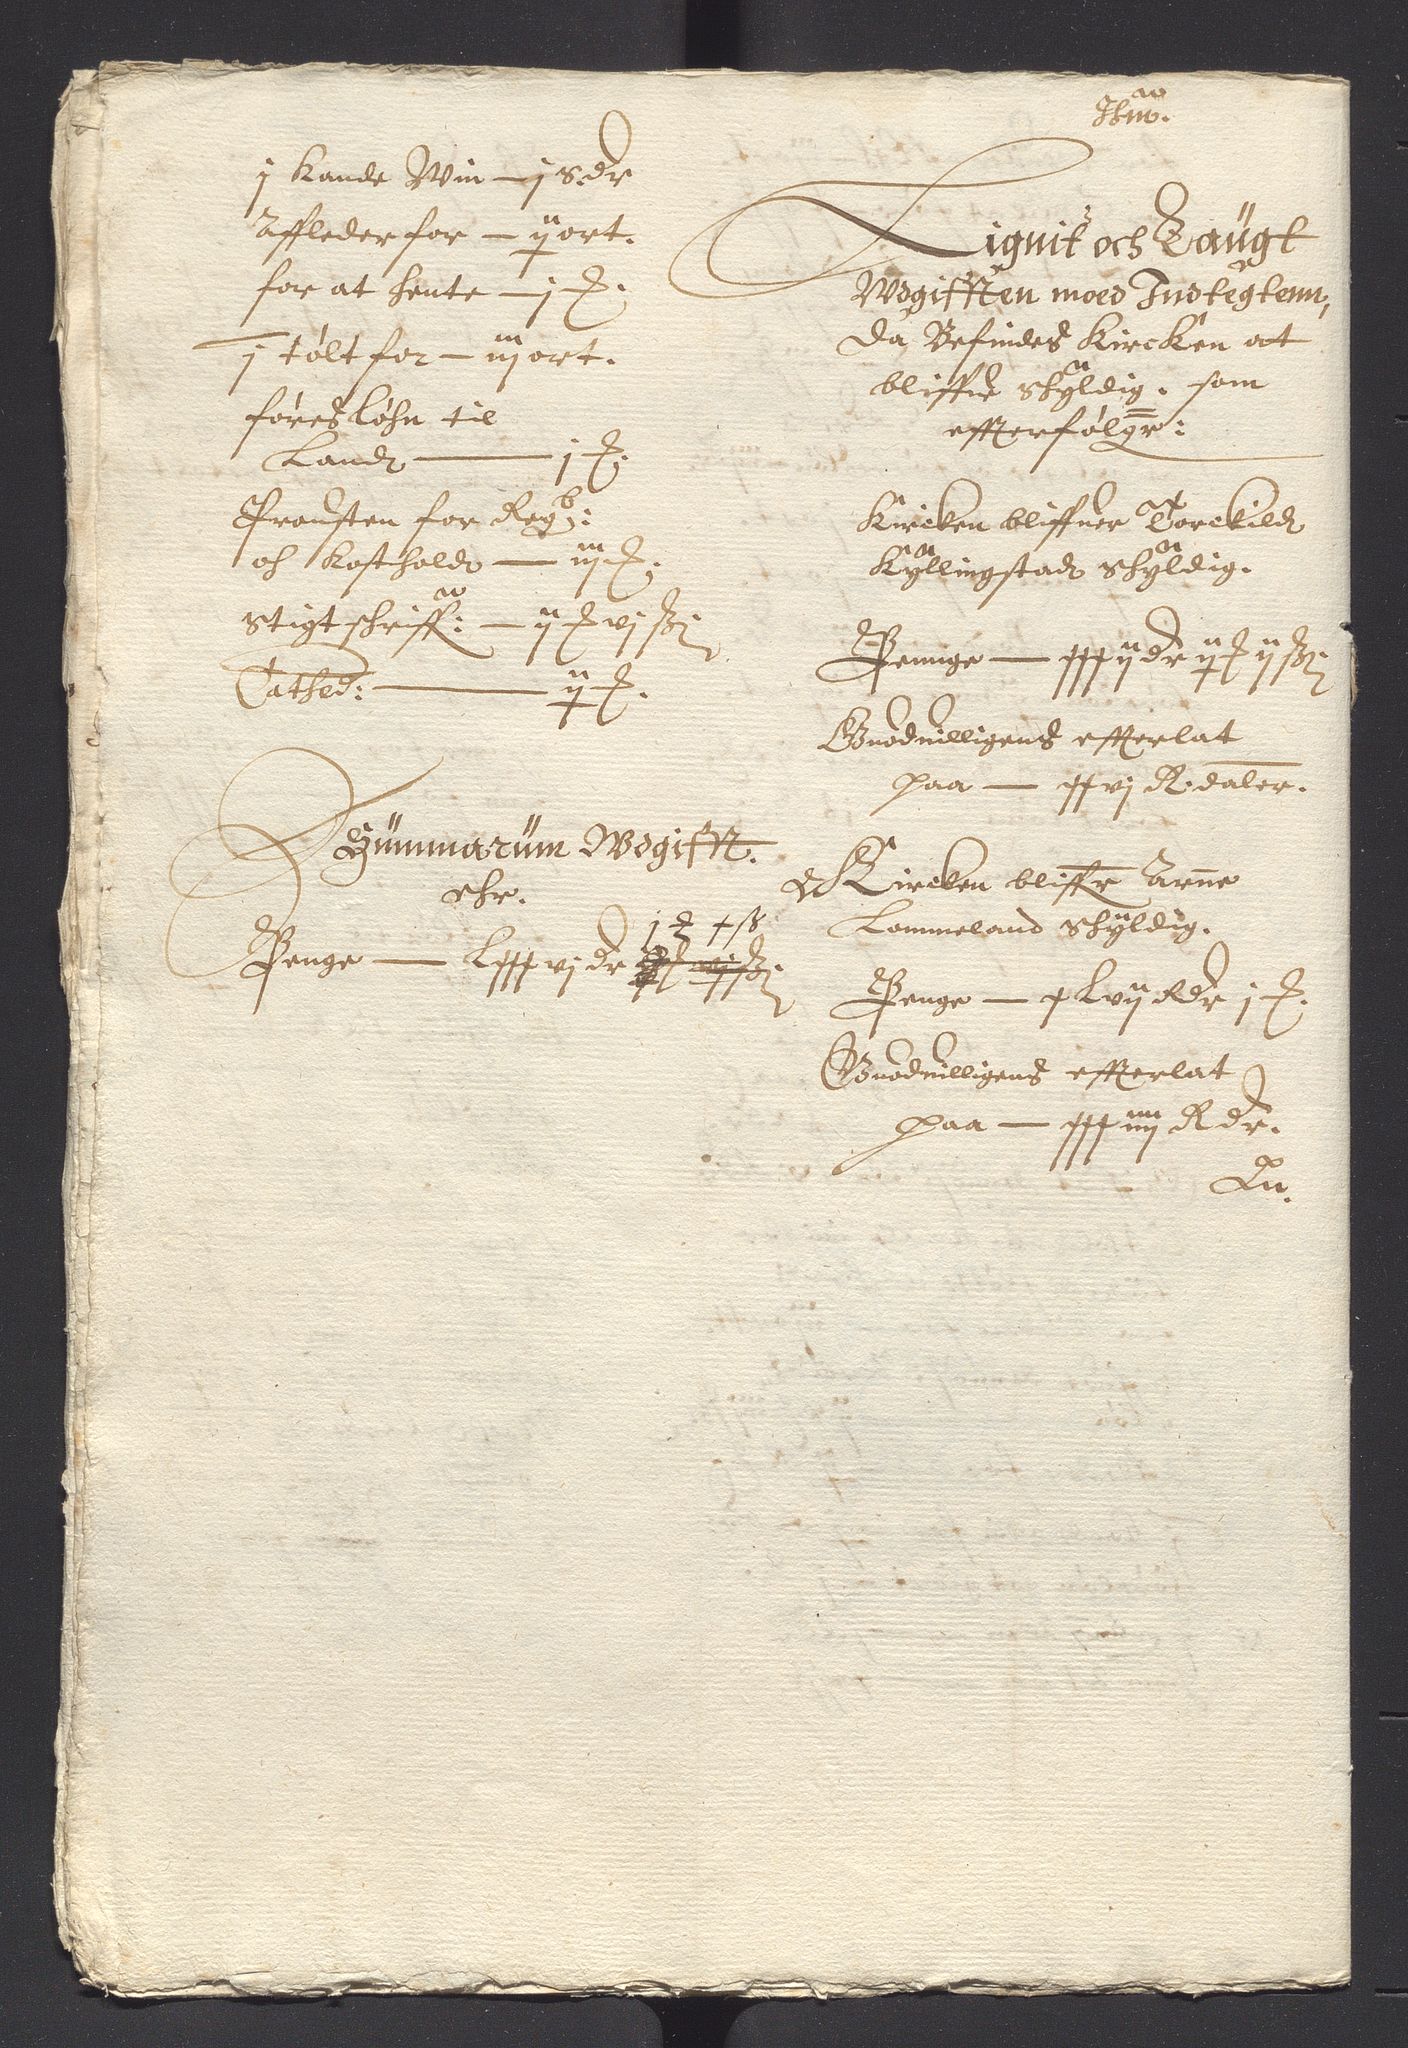 j Kande Win — j S.dr
Affleder for — ij ort.
for at hente — j ℳ.
j tølt for — iij ort.
føres løhn til
Landz — j ℳ.
Prousten for Reg:
och Kostholdz — iij ℳ.
Stigtschriff: — ij ℳ vj ß
Cathed: — ij ℳ.
Summarum Wdgifft.
ehr.
j ℳ x ß
Penge — Lxxxvj dr
Lignit och Laugt
Wdgifften moed Indtegtenn,
da Befindes Kircken at
bliffue schyldig. som
effterfølger:
Kircken bliffuer Torckildz
Kyllingstadz schyldig.
Penninge — xxxij dr ij ℳ ij ß
Guodvilligens effterlat
paa — xxvj R.daler.
Kircken bliffr Arne
Lommeland schyldig.
Penge — x Lvij Rdr j ℳ.
Guodvilligens effterlat
paa — xxxiiij R dr.
En.